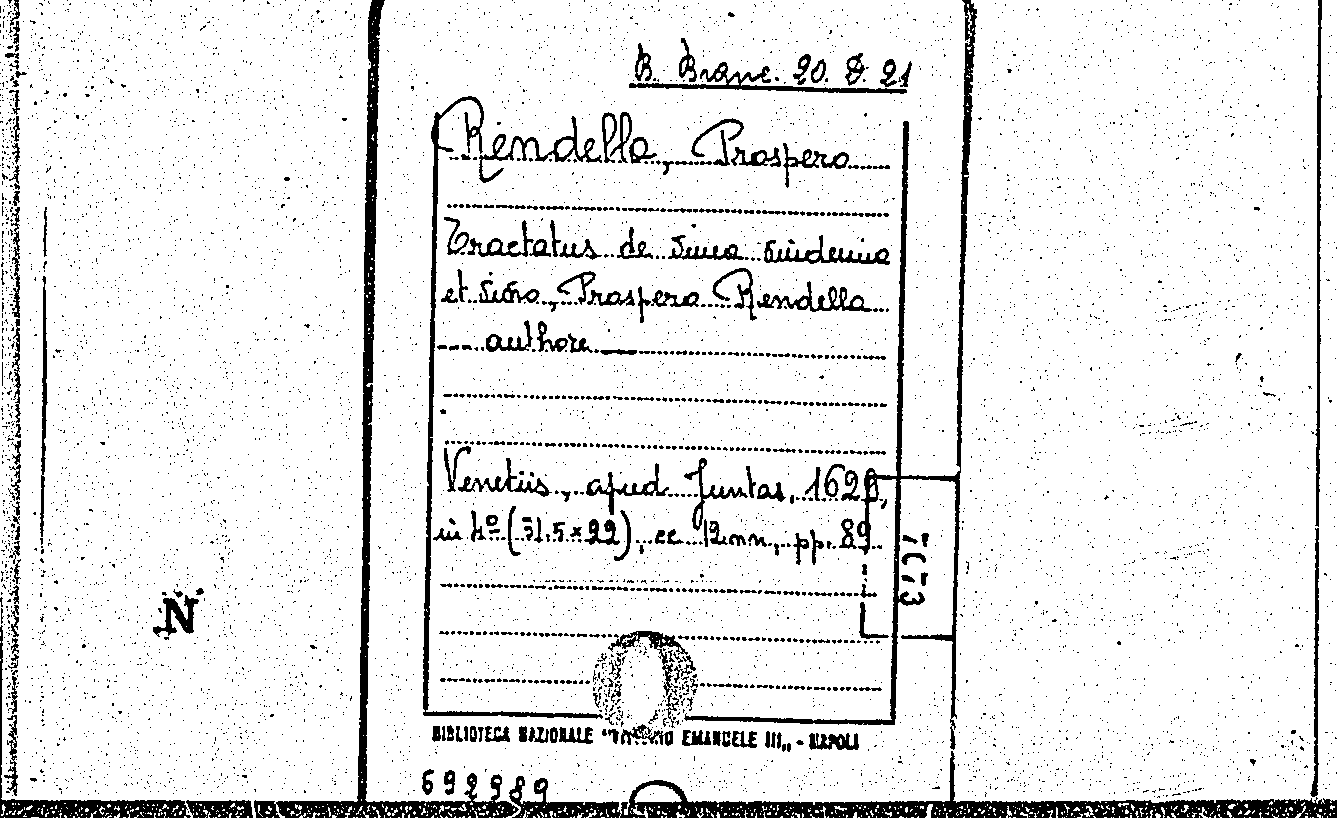 B. Branc. 20. D 21
Rendella, Prospero
Tractatus de vinea vindemia
et vino, Prospero Rendella
--- authore
Venetiis, apud Juntas, 1629,
in 4º (31.5×22), cc 12 nn, pp. 89
7C73
N
BIBLIOTECA NAZIONALE "VITTORIO EMANUELE III„ - NAPOLI
692989